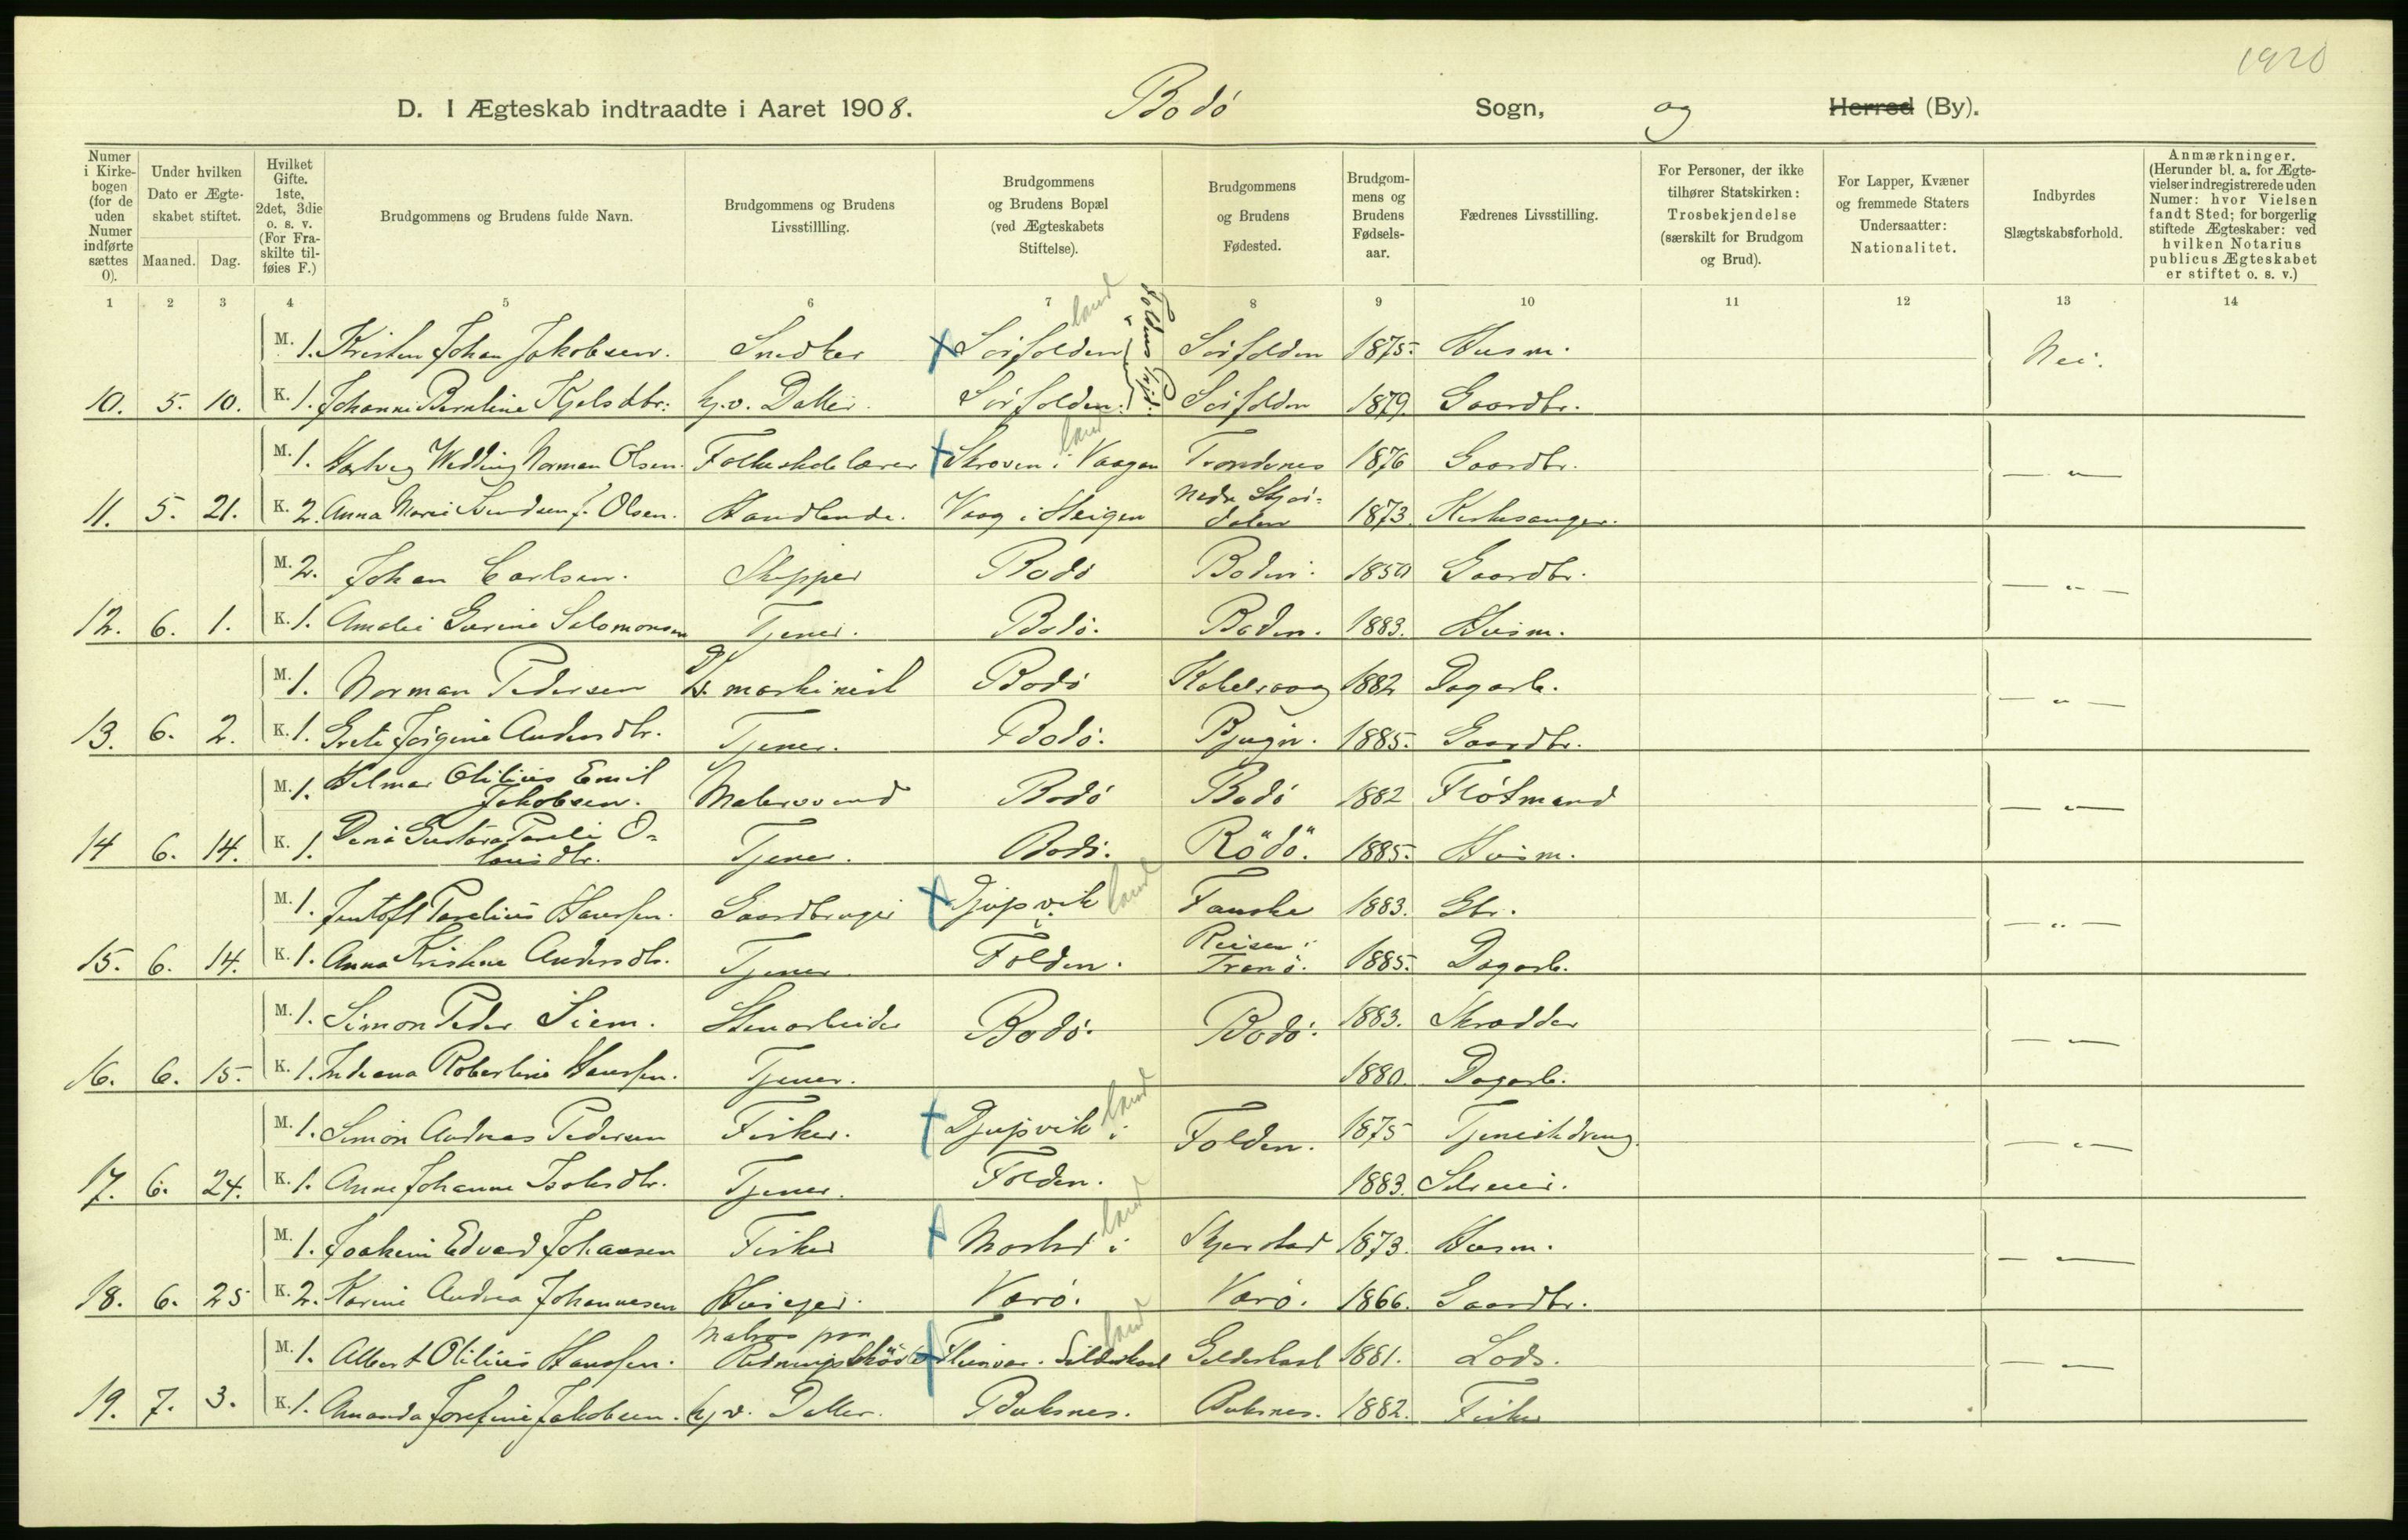 1920
D. I Ægteskab indtraadte i Aaret 1908. Bodö Sogn, og Herred (By).
Numer i Kirkebogen (for de uden Numer indførte sættes 0).
Under hvilken Dato er Ægteskabet stiftet.
Maaned. Dag.
Hvilket Gifte. 1ste, 2det, 3die o. s. v. (For Fraskilte tilføies F.)
Brudgommens og Brudens fulde Navn.
Brudgommens og Brudens Livsstillling.
Brudgommens og Brudens Bopæl (ved Ægteskabets Stiftelse).
Brudgommens og Brudens Fødested.
Brudgommens og Brudens Fødselsaar.
Fædrenes Livsstilling.
For Personer, der ikke tilhører Statskirken: Trosbekjendelse (særskilt for Brudgom og Brud).
For Lapper, Kvæner og fremmede Staters Undersaatter: Nationalitet.
Indbyrdes Slægtskabsforhold.
Anmærkninger. (Herunder bl. a. for Ægtevielser indregistrerede uden Numer: hvor Vielsen fandt Sted; for borgerlig stiftede Ægteskaber: ved hvilken Notarius publicus Ægteskabet er stiftet o. s. v.)
1 2 3 4 5 6 7 8 9 10 11 12 13 14
M. 1. Kristen Johan Jakobsen. Snedker Sörfolden land Sörfolden 1875. Husm. Nei.
10. 5. 10. K. 1. Johanne Berntine Kjelsdtr: hj.v. Datter. Sörfolden. Sörfolden 1879. Gaardbr.
M. 1. Hartvig Wedding Norman Olsen. Folkeskolelærer Skroven i Vaagan land Trondenes 1876 Gaardbr. — " —
11. 5. 21. K. 2. Anna Marie Svendsen f. Olsen. Handlende. Vaag i Steigen Nedr Stjördalen 1873. Kirkesanger.
M. 2. Johan Carlsen. Skipper Bodö Bodin. 1850 Gaardbr. — " —
12. 6. 1. K. 1. Amalie Gurine Salomonsen Tjener. Bodö. Bodin. 1883. Husm.
M. 1. Norman Pedersen maskinist Bodö Kabelvaag 1882 Dagarb. — " —
13. 6. 2. K. 1. Grete Jörgine Andersdtr. Tjener. Bodö. Bjugn. 1885. Gaardbr.
M. 1. Hilmar Otilius Emil Jakobsen. Malersvend Bodö Bodö 1882 Flötmand — " —
14 6. 14. K. 1. Dina Gustava Pareli Olausdtr. Tjener. Bodö. Rödö. 1885. Husm.
M. 1. Jentoft Parelius Hanssen. Gaardbruger Djupvik i land Fauske 1883. Gbr. — " —
15. 6. 14. K. 1. Anna Kristine Andersdtr. Tjener Folden. Reisen i Tranö. 1885. Dagarb.
M. 1. Simon Peder Siem. Stenarbeider Bodö. Bodö. 1883. Skrædder — " —
16. 6. 15. K. 1. Indiana Robertine Hanssen. Tjener. 1880. Dagarb.
M. 1. Simon Andreas Pedersen Fisker. Djupvik i land Folden. 1875 Tjenestedreng. — " —
17. 6. 24. K. 1. Anne Johanna Isaksdtr. Tjener. Folden. 1883. Selveier.
M. 1. Joakim Edvard Johansen Fisker i land Skjerstad 1873. Husm. — " —
18. 6. 25 K. 2. Karine Andrea Johannesen Huseier. Værö. Værö. 1866. Gaardbr.
M. 1. Albert Otilius Hanssen. Matros paa Redningssköite Fleinvær. Gildeskaal land Gildeskaal 1881. Lods. — " —
19. 7. 3. K. 1. Amanda Josefine Jakobsen. hj.v. Datter. Buksnes. Buksnes. 1882. Fisker